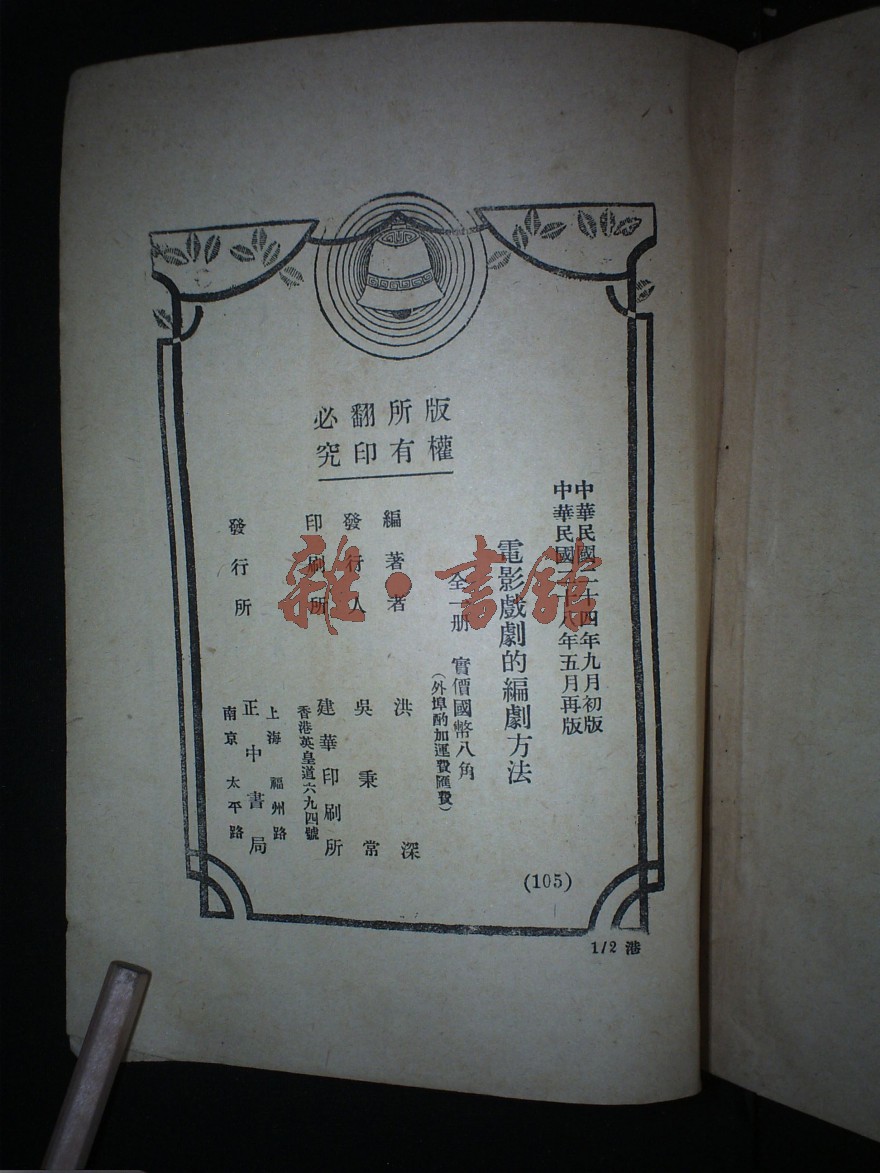 版權所有
翻印必究
中華民國二十四年九月初版
中華民國二十八年五月再版
電影戲劇的編劇方法
全一册 實價國幣八角
(外埠酌加運費匯費)
編著者 洪深
發行人 吳秉常
印刷所 建華印刷所
香港英皇道六九四號
發行所 正中書局
上海福州路
南京太平路
(105)
1/2 港
雜·書館